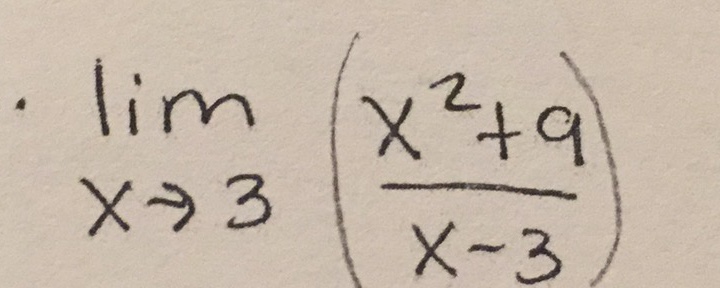 . lim x→3 (x²+9 / x-3)